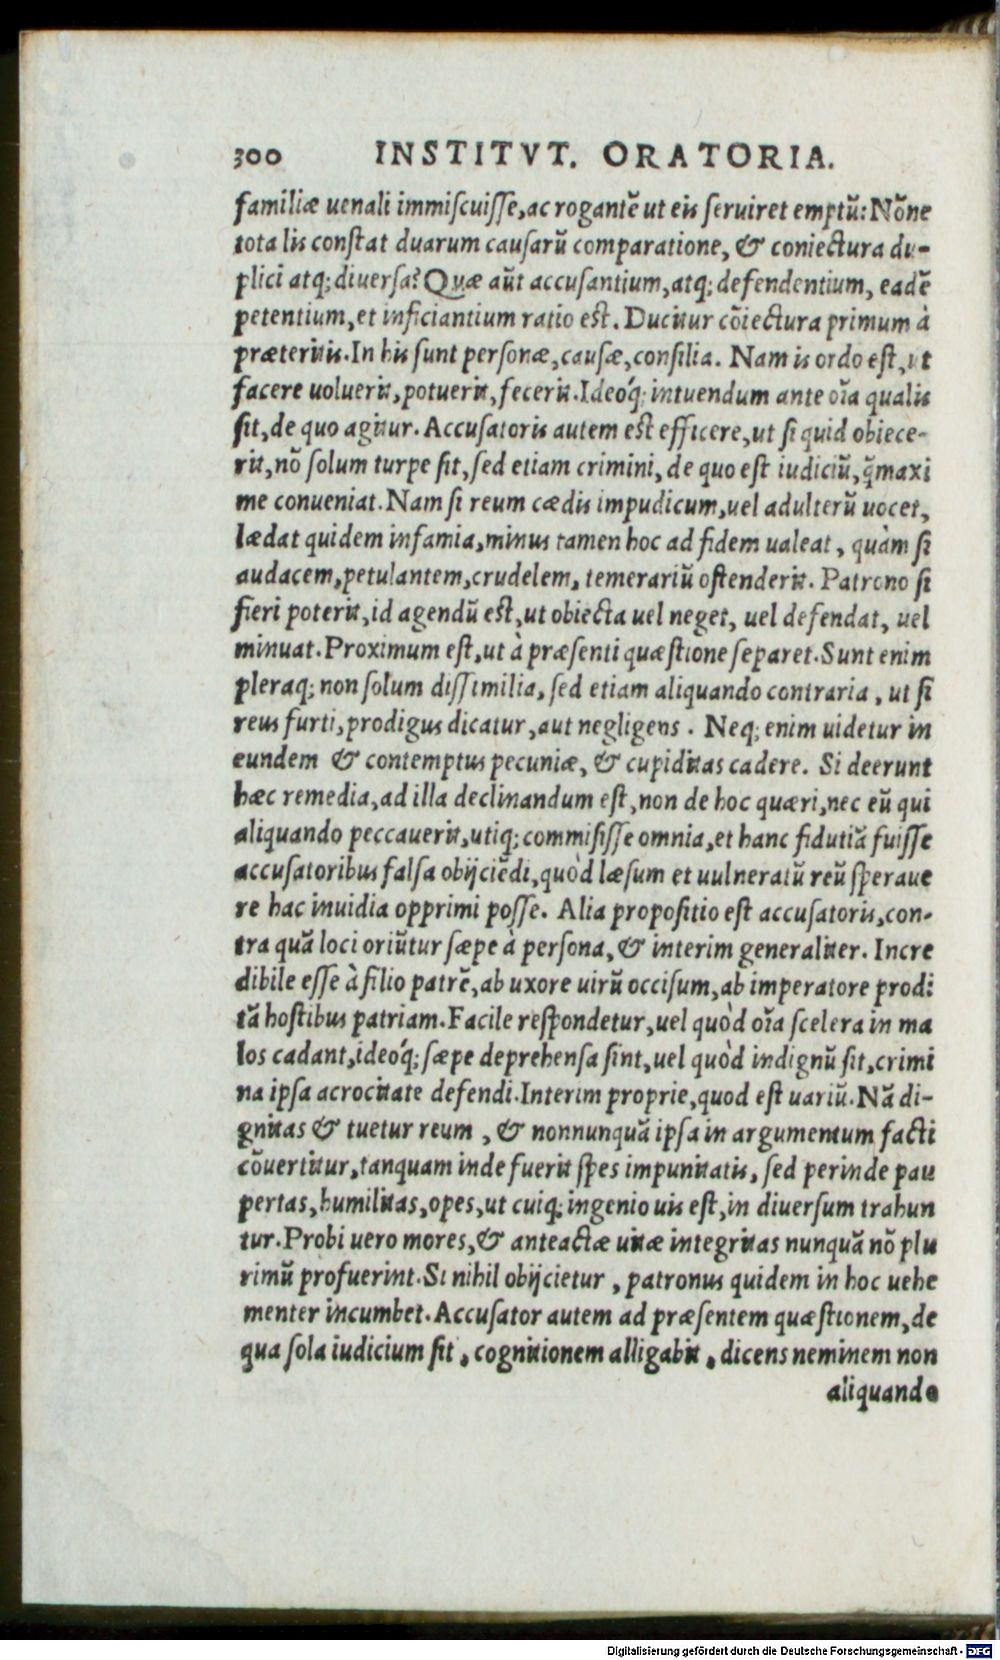 300 INSTITVT. ORATORIA.
familiæ uenali immiscuisse, ac rogantẽ ut eis seruiret emptũ: Nõne
tota lis constat duarum causarũ comparatione, & coniectura du-
plici atq; diuersa? Quæ aũt accusantium, atq; defendentium, eadẽ
petentium, et inficiantium ratio est. Ducitur cõiectura primum à
præteritis. In his sunt personæ, causæ, consilia. Nam is ordo est, ut
facere uoluerit, potuerit, fecerit. Ideoq́; intuendum ante oĩa qualis
sit, de quo agitur. Accusatoris autem est efficere, ut si quid obiece-
rit, nõ solum turpe sit, sed etiam crimini, de quo est iudiciũ, q̃maxi
me conueniat. Nam si reum cædis impudicum, uel adulterũ uocet,
lædat quidem infamia, minus tamen hoc ad fidem ualeat, quàm si
audacem, petulantem, crudelem, temerariũ ostenderit. Patrono si
fieri poterit, id agendũ est, ut obiecta uel neget, uel defendat, uel
minuat. Proximum est, ut à præsenti quæstione separet. Sunt enim
pleraq; non solum dissimilia, sed etiam aliquando contraria, ut si
reus furti, prodigus dicatur, aut negligens. Neq; enim uidetur in
eundem & contemptus pecuniæ, & cupiditas cadere. Si deerunt
hæc remedia, ad illa declinandum est, non de hoc quæri, nec eũ qui
aliquando peccauerit, utiq; commisisse omnia, et hanc fidutiã fuisse
accusatoribus falsa obijciẽdi, quòd læsum et uulneratũ reũ speraue
re hac inuidia opprimi posse. Alia propositio est accusatoris, con-
tra quã loci oriũtur sæpe à persona, & interim generaliter. Incre
dibile esse à filio patrẽ, ab uxore uirũ occisum, ab imperatore prodi
tã hostibus patriam. Facile respondetur, uel quòd oĩa scelera in ma
los cadant, ideoq́; sæpe deprehensa sint, uel quòd indignũ sit, crimi
na ipsa acrocitate defendi. Interim proprie, quod est uariũ. Nã di-
gnitas & tuetur reum, & nonnunquã ipsa in argumentum facti
cõuertitur, tanquam inde fuerit spes impunitatis, sed perinde pau
pertas, humilitas, opes, ut cuiq; ingenio uis est, in diuersum trahun
tur. Probi uero mores, & anteactæ uitæ integritas nunquã nõ plu
rimũ profuerint. Si nihil obijcietur, patronus quidem in hoc uehe
menter incumbet. Accusator autem ad præsentem quæstionem, de
qua sola iudicium sit, cognitionem alligabit, dicens neminem non
aliquando
Digitalisierung gefördert durch die Deutsche Forschungsgemeinschaft - DFG